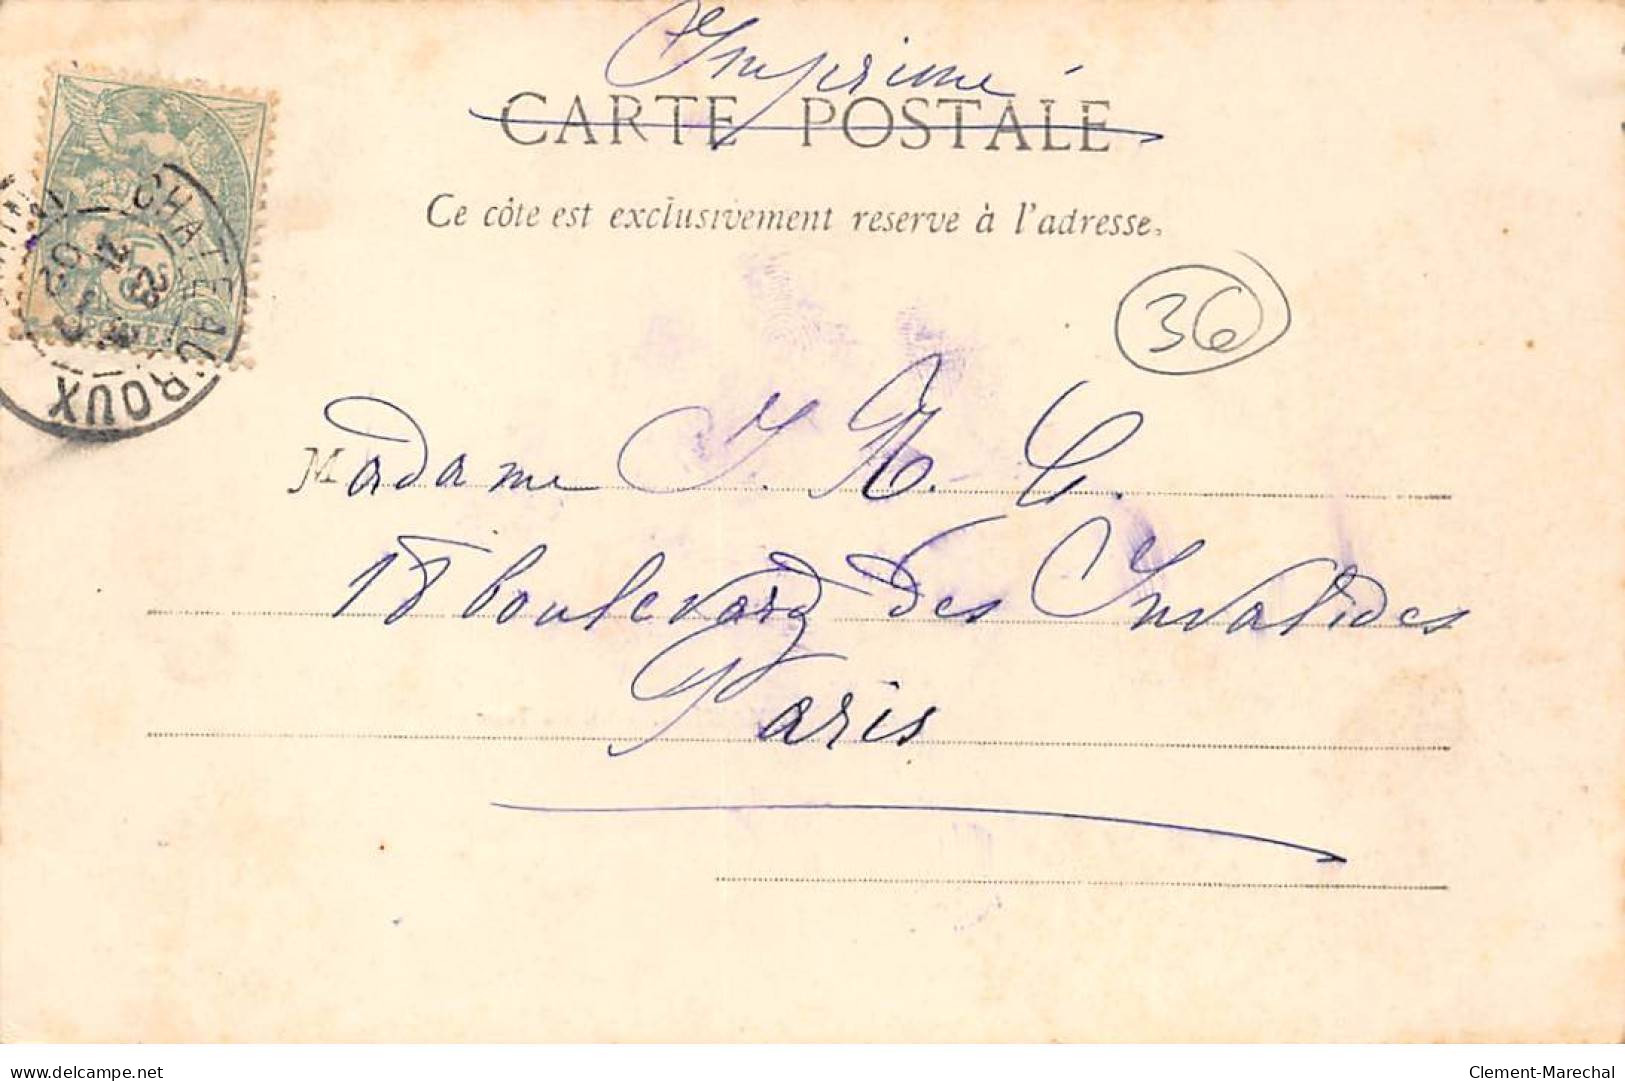 Imprimé
CARTE POSTALE
Ce côte est exclusivement reserve à l'adresse.
36
CHATEAUROUX
5
POSTES
Madame J. N. C.
18 boulevard des Invalides
Paris
delcampe.net
Clement-Marechal